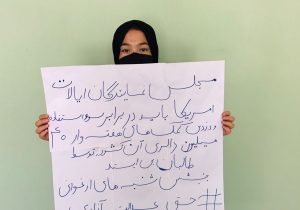 مجلس نمایندگان ایالات
امریکا باید در برابر سوء استفاده
دزدی کمک های هفته وار ۴۰
میلیون دالری آن کشور توسط
طالبان بی ایستد
جنبش شنبه های ارغوانی
#